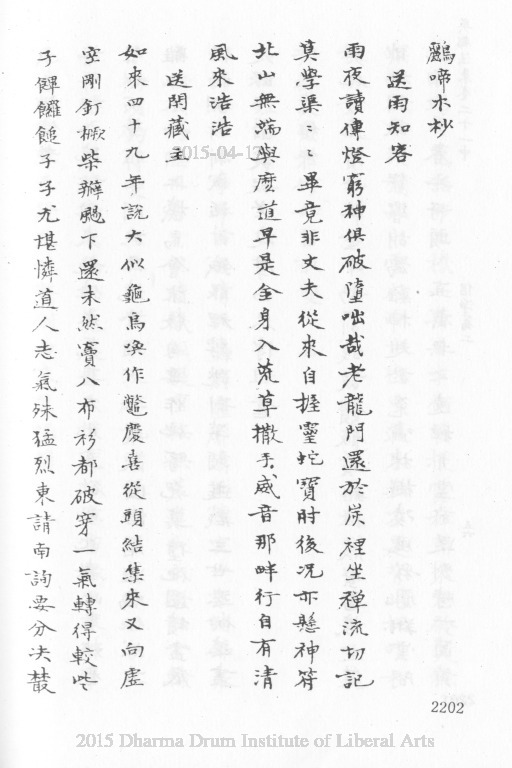 鷓啼木杪
送雨知客
雨夜讀傳燈窮神俱破墮咄哉老龍門還於炭裡坐禪流切記
莫學渠〻畢竟非丈夫從來自握靈蛇寶肘後况亦懸神符
北山無端與麼道早是全身入荒草撒手威音那畔行自有清
風來浩浩
送閑藏主
如來四十九年說大似龜烏喚作鱉慶喜從頭結集來又向虛
空剛釘橛柴籬颺下還未然賣八布衫都破穿一氣轉得較些
子饆饠䭔子子尤堪憐道人志氣殊猛烈東請南詢要分决叢
2202
2015-04-1
2015 Dharma Drum Institute of Liberal Arts